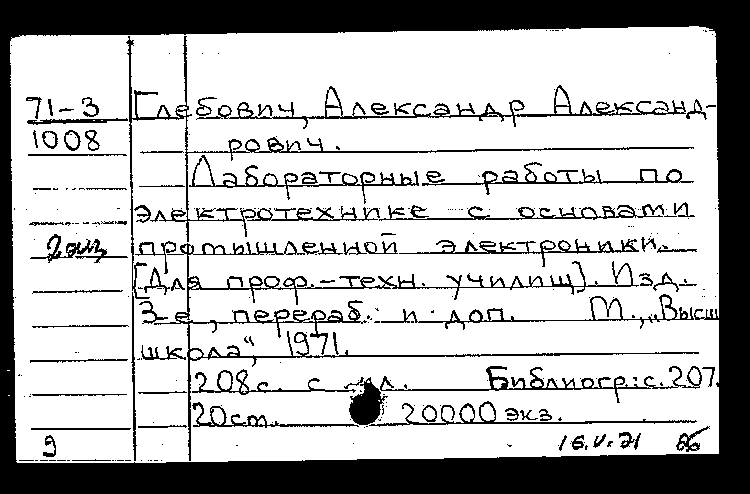 71-3
1008
Глебович, Александр Александ-
рович.
Лабораторные работы по
электротехнике с основами
промышленной электроники.
[Для проф.-техн. училищ]. Изд.
3-е, перераб. и доп. М., „Высш
школа“, 1971.
208 с. с ил. Библиогр: с. 207.
20 см. 20000 экз.
9
16.V.71